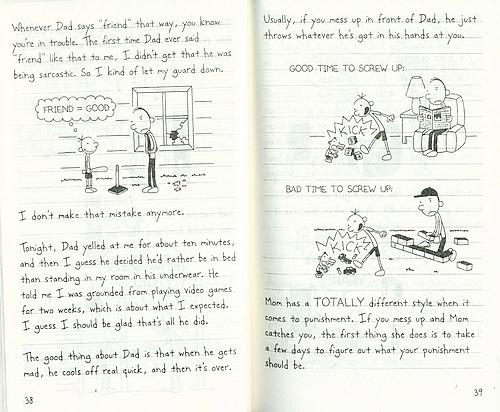 Whenever Dad says "friend" that way, you know
you're in trouble. The first time Dad ever said
"friend" like that to me, I didn't get that he was
being sarcastic. So I kind of let my guard down.
FRIEND = GOOD
I don't make that mistake anymore.
Tonight, Dad yelled at me for about ten minutes,
and then I guess he decided he'd rather be in bed
than standing in my room in his underwear. He
told me I was grounded from playing video games
for two weeks, which is about what I expected.
I guess I should be glad that's all he did.
The good thing about Dad is that when he gets
mad, he cools off real quick, and then it's over.
38
Usually, if you mess up in front of Dad, he just
throws whatever he's got in his hands at you.
GOOD TIME TO SCREW UP:
KICK!
BAD TIME TO SCREW UP:
KICK!
Mom has a TOTALLY different style when it
comes to punishment. If you mess up and Mom
catches you, the first thing she does is to take
a few days to figure out what your punishment
should be.
39